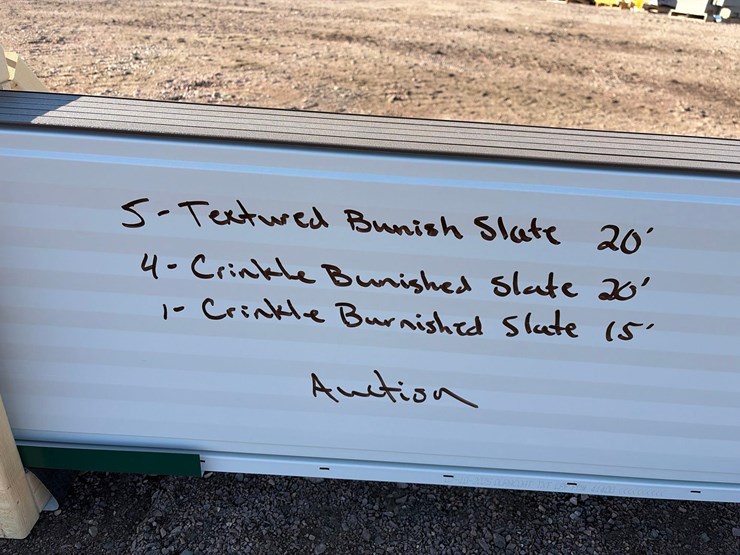 5 - Textured Burnish Slate 20'
4 - Crinkle Burnished Slate 20'
1 - Crinkle Burnished Slate 15'
Auction